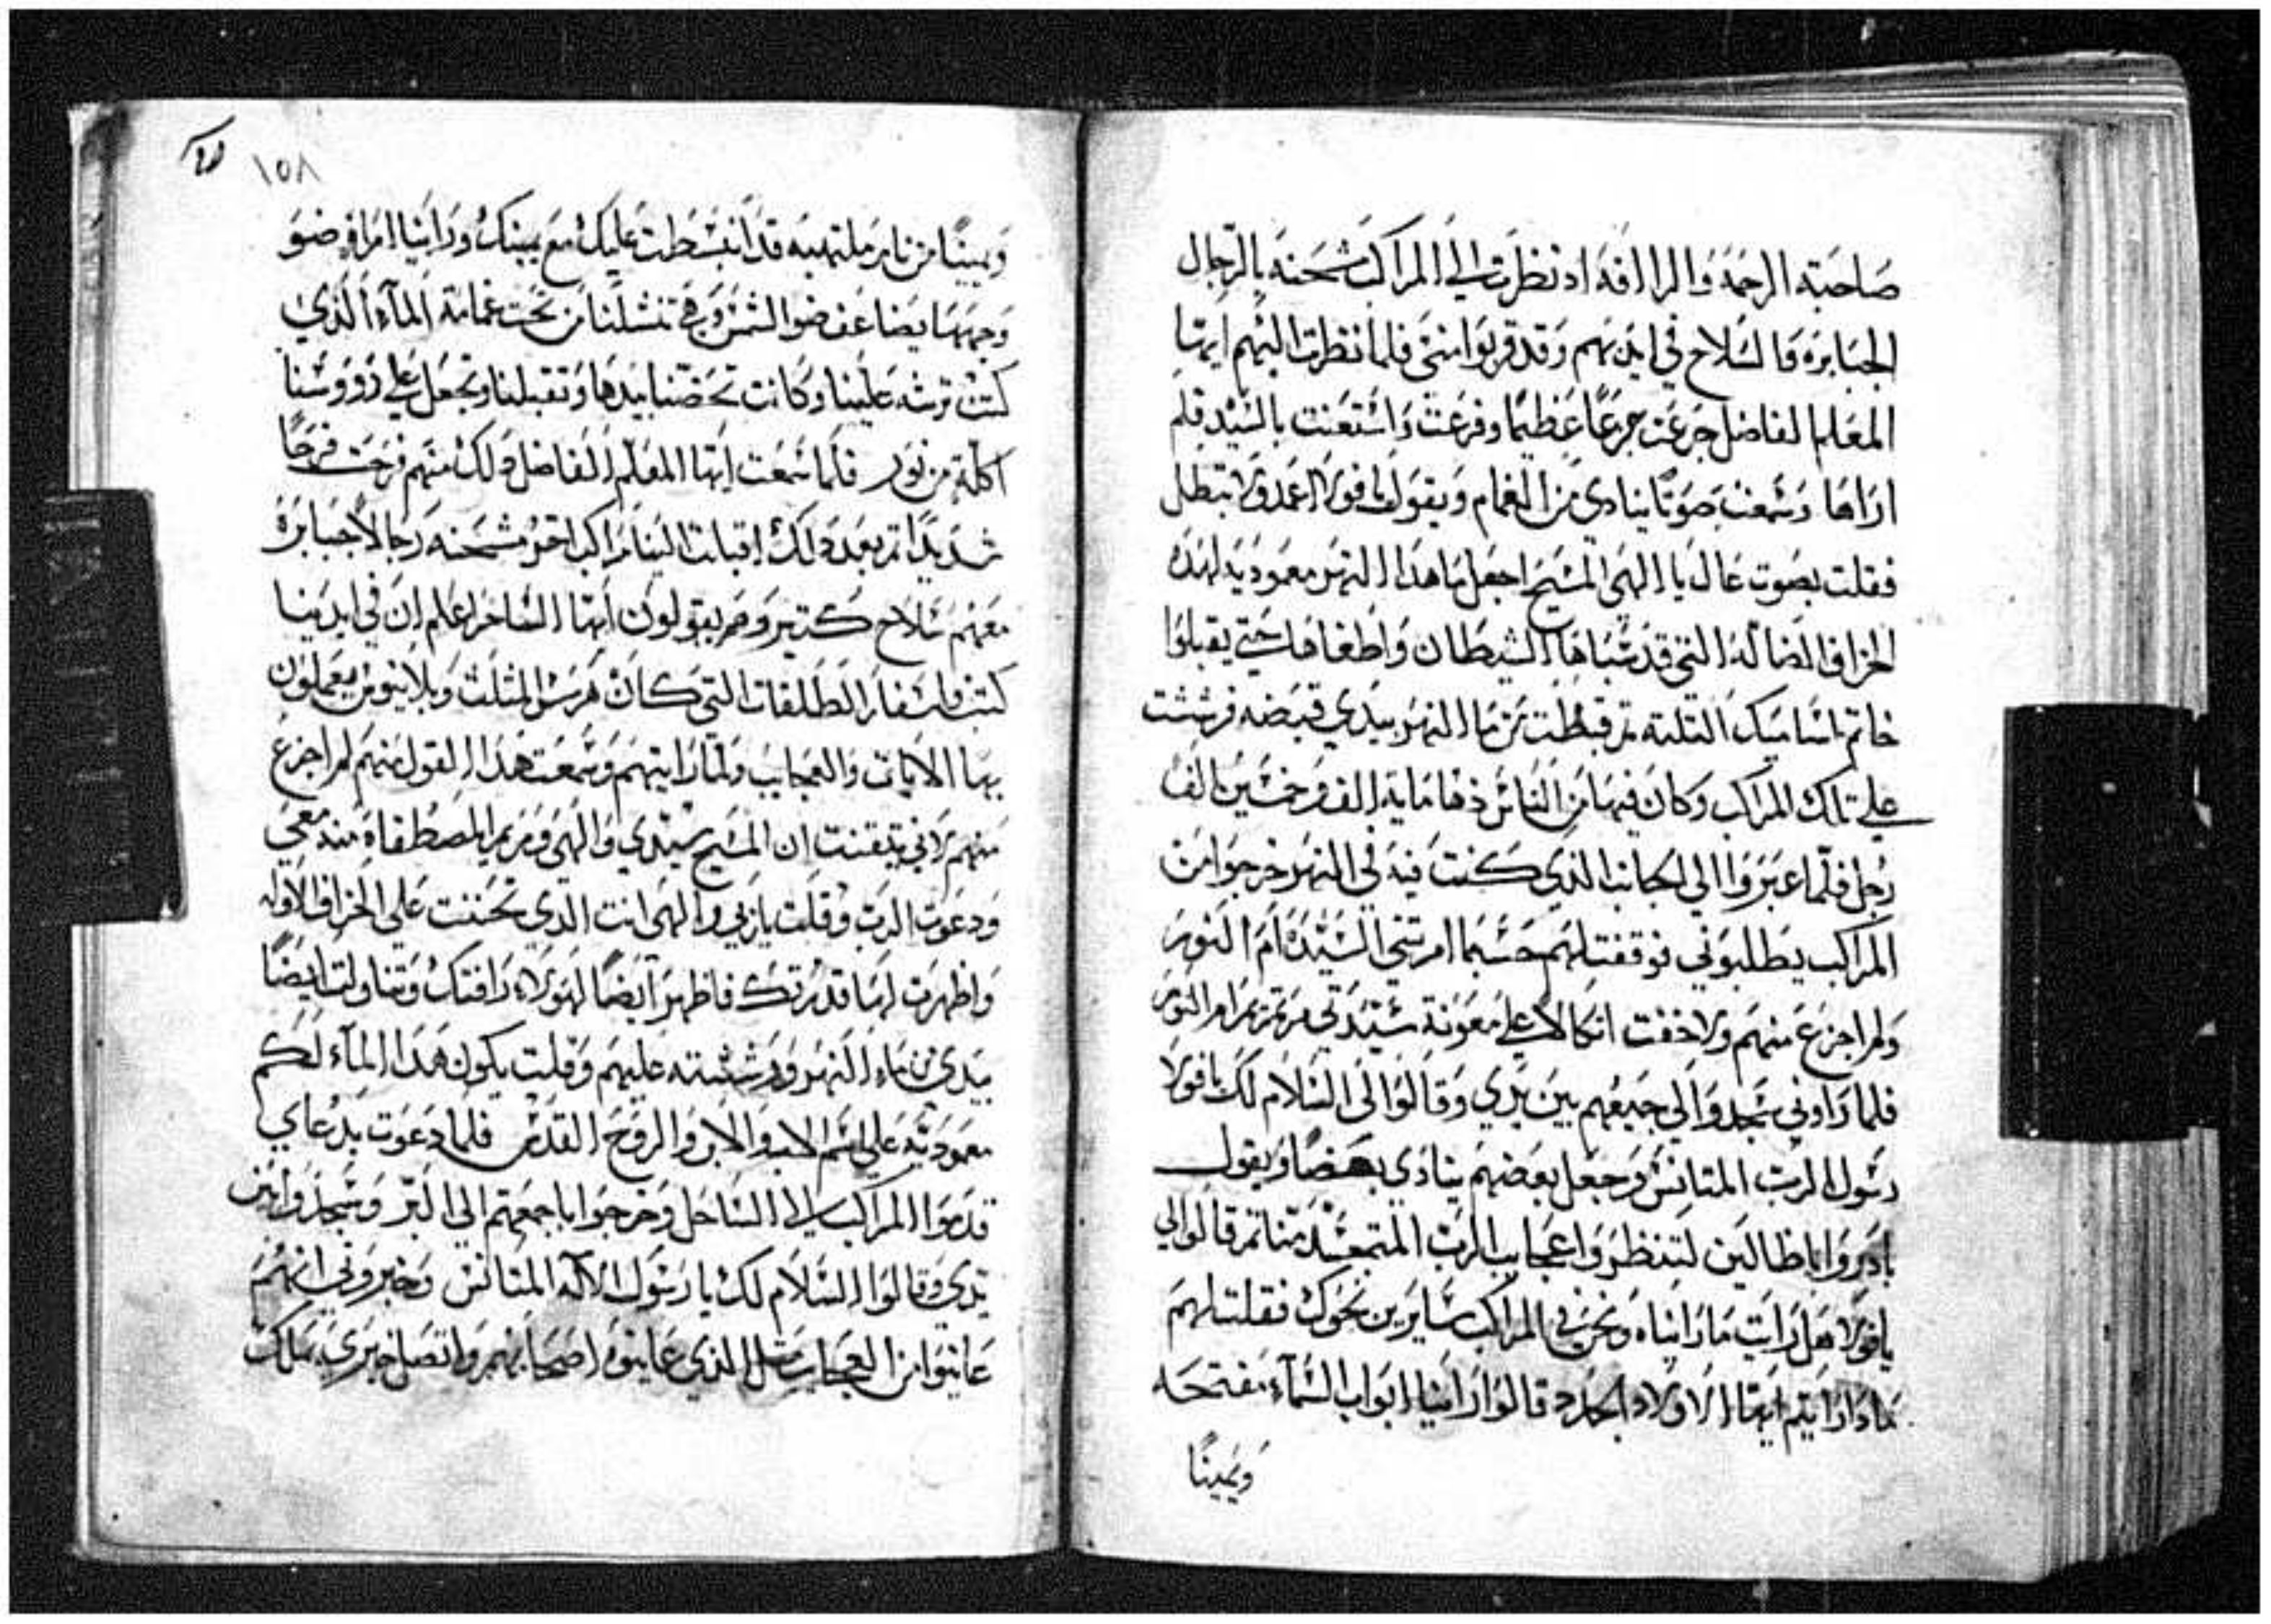 صاحبة الرحمة والرالفه اد نظرت الي المراكب مشحنه بالرجال
الجبابره والسلاح في ايديهم وقد قربوا مني فلما نظرت اليهم ايها
المعلم الفاضل جزعت جزعًا عظيمًا وفزعت واستغنت بالسيد فلم
اراها وسمعت صوتًا ينادي من الغمام ويقول يافولا اعمد ولا تبطل
فقلت بصوت عال يا الهي المسيح اجعل ما هدا النهر معموديه لهده
الخراف الضاله التي قد سباها الشيطان واطغاها حتي يقبلوا
خاتم اساميك التلته تم قبطت من ما النهر بيدي قبضه فرششت
علي تلك المراكب وكان فيها من الناس زها ماية الف وخمسين الف
رجل فلما عبروا الي الجانب الدي كنت فيه في النهر خرجوا من
المراكب يطلبوني فوقفت لهم حسبما امرتني السيده ام النور
ولم اجزع منهم ولا خفت اتكالا علي معونة ستدتي مرتمريم ام النور
فلما راوني سجدوا لي جميعهم بين يدي وقالوا لي السلام لك يافولا
رسول الرب المتانس وجعل بعضهم ينادي بعضًا ويقول
بادروا ياظالين لتنظروا عجايب الرب المتجسد منا تم قالوا لي
يافولا هل رايت ما رايناه ونحن في المراكب سايرين نحوك فقلت لهم
مادا رايتم ايها الاولاد الجدد قالوا راينا ابواب السمآء مفتحه
ويمينًا
١٥٨
ويمينًا من نار ملتهبه قد انبسطت عليك مع يمينك وراينا امراه ضو
وجهها يضاعف ضو الشمس وهي تنشلنا من تحت غمامة المآء الدي
كنت ترشه علينا وكانت تحضنا بيدها وتقبلنا وتجعل علي رووسنا
اكلة من نور فلما سمعت ايها المعلم الفاضل دلك منهم فرحت فرحًا
شديدًا تم بعد دلك اقبلت الينا مراكب اخر مشحنه رجالًا جبابرة
معهم سلاح كتير وهم يقولون ايها الساحر اعلم ان في ايدينا
كتب واسفار الطلقات التي كان هرمس المثلث وبلاينوس يعملون
بها الايات والعجايب ولما رايتهم وسمعت هدا القول منهم لم اجزع
منهم لاني تيقنت ان المسيح سيدي والهي ومريم المصطفاه منه معي
ودعوت الرب وقلت يا ربي والهي انت الدي تحننت علي الخراف الاوله
واظهرت لها قدرتك فاظهر ايضًا لهولاء رافتك وتناولت ايضًا
بيدي من ماء النهر ورششته عليهم وقلت يكون هدا المآء لكم
معموديه علي اسم الاب والابن والروح القدس فلما دعوت بدعاي
قدموا المراكب الي الساحل وخرجوا باجمعهم الي البر وسجدوا بين
يدي وقالوا السلام لك يا رسول الاله المتانس وخبروني انهم
عاينوا من العجايب متل الدي عاينوه اصحابهم واتصل خبري بملك